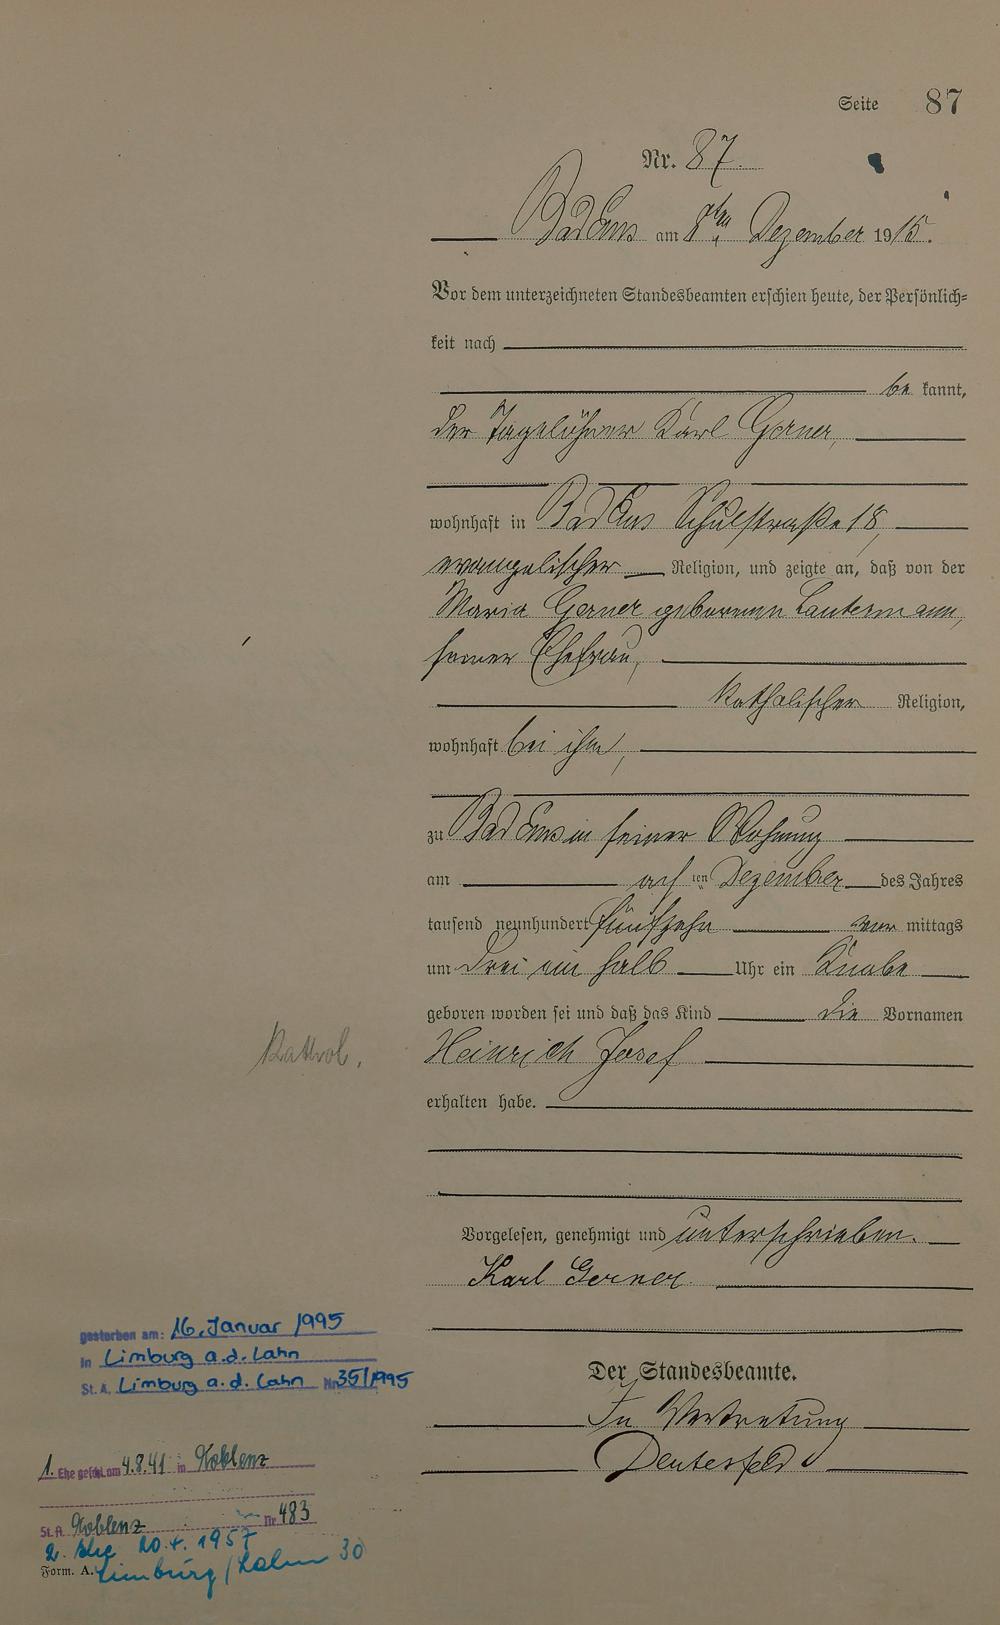 Seite 87
Nr. 87.
Bad Ems am 8ten Dezember 1915.
Vor dem unterzeichneten Standesbeamten erschien heute, der Persönlich=
keit nach
be kannt,
der Tagelöhner Karl Gerner,
wohnhaft in Bad Ems Schulstraße 18,
evangelischer Religion, und zeigte an, daß von der
Maria Gerner geborenen Lautermann,
seiner Ehefrau,
katholischer Religion,
wohnhaft bei ihm,
zu Bad Ems in seiner Wohnung
am ten Dezember des Jahres
tausend neunhundert fünfzehn vor mittags
um drei ein halb Uhr ein Knabe
geboren worden sei und daß das Kind die Vornamen
Heinrich Josef
erhalten habe.
Vorgelesen, genehmigt und unterschrieben.
Karl Gerner.
Der Standesbeamte.
In Vertretung
Kathol.
gestorben am: 16. Januar 1995
in Limburg a.d. Lahn
St. A. Limburg a.d. Lahn Nr. 35/1995
1. Ehe geschl. am 4.8.41 in Koblenz
St. A. Koblenz Nr. 483
2. Ehe 20.4.1957
Form. A. Limburg/Lahn 30